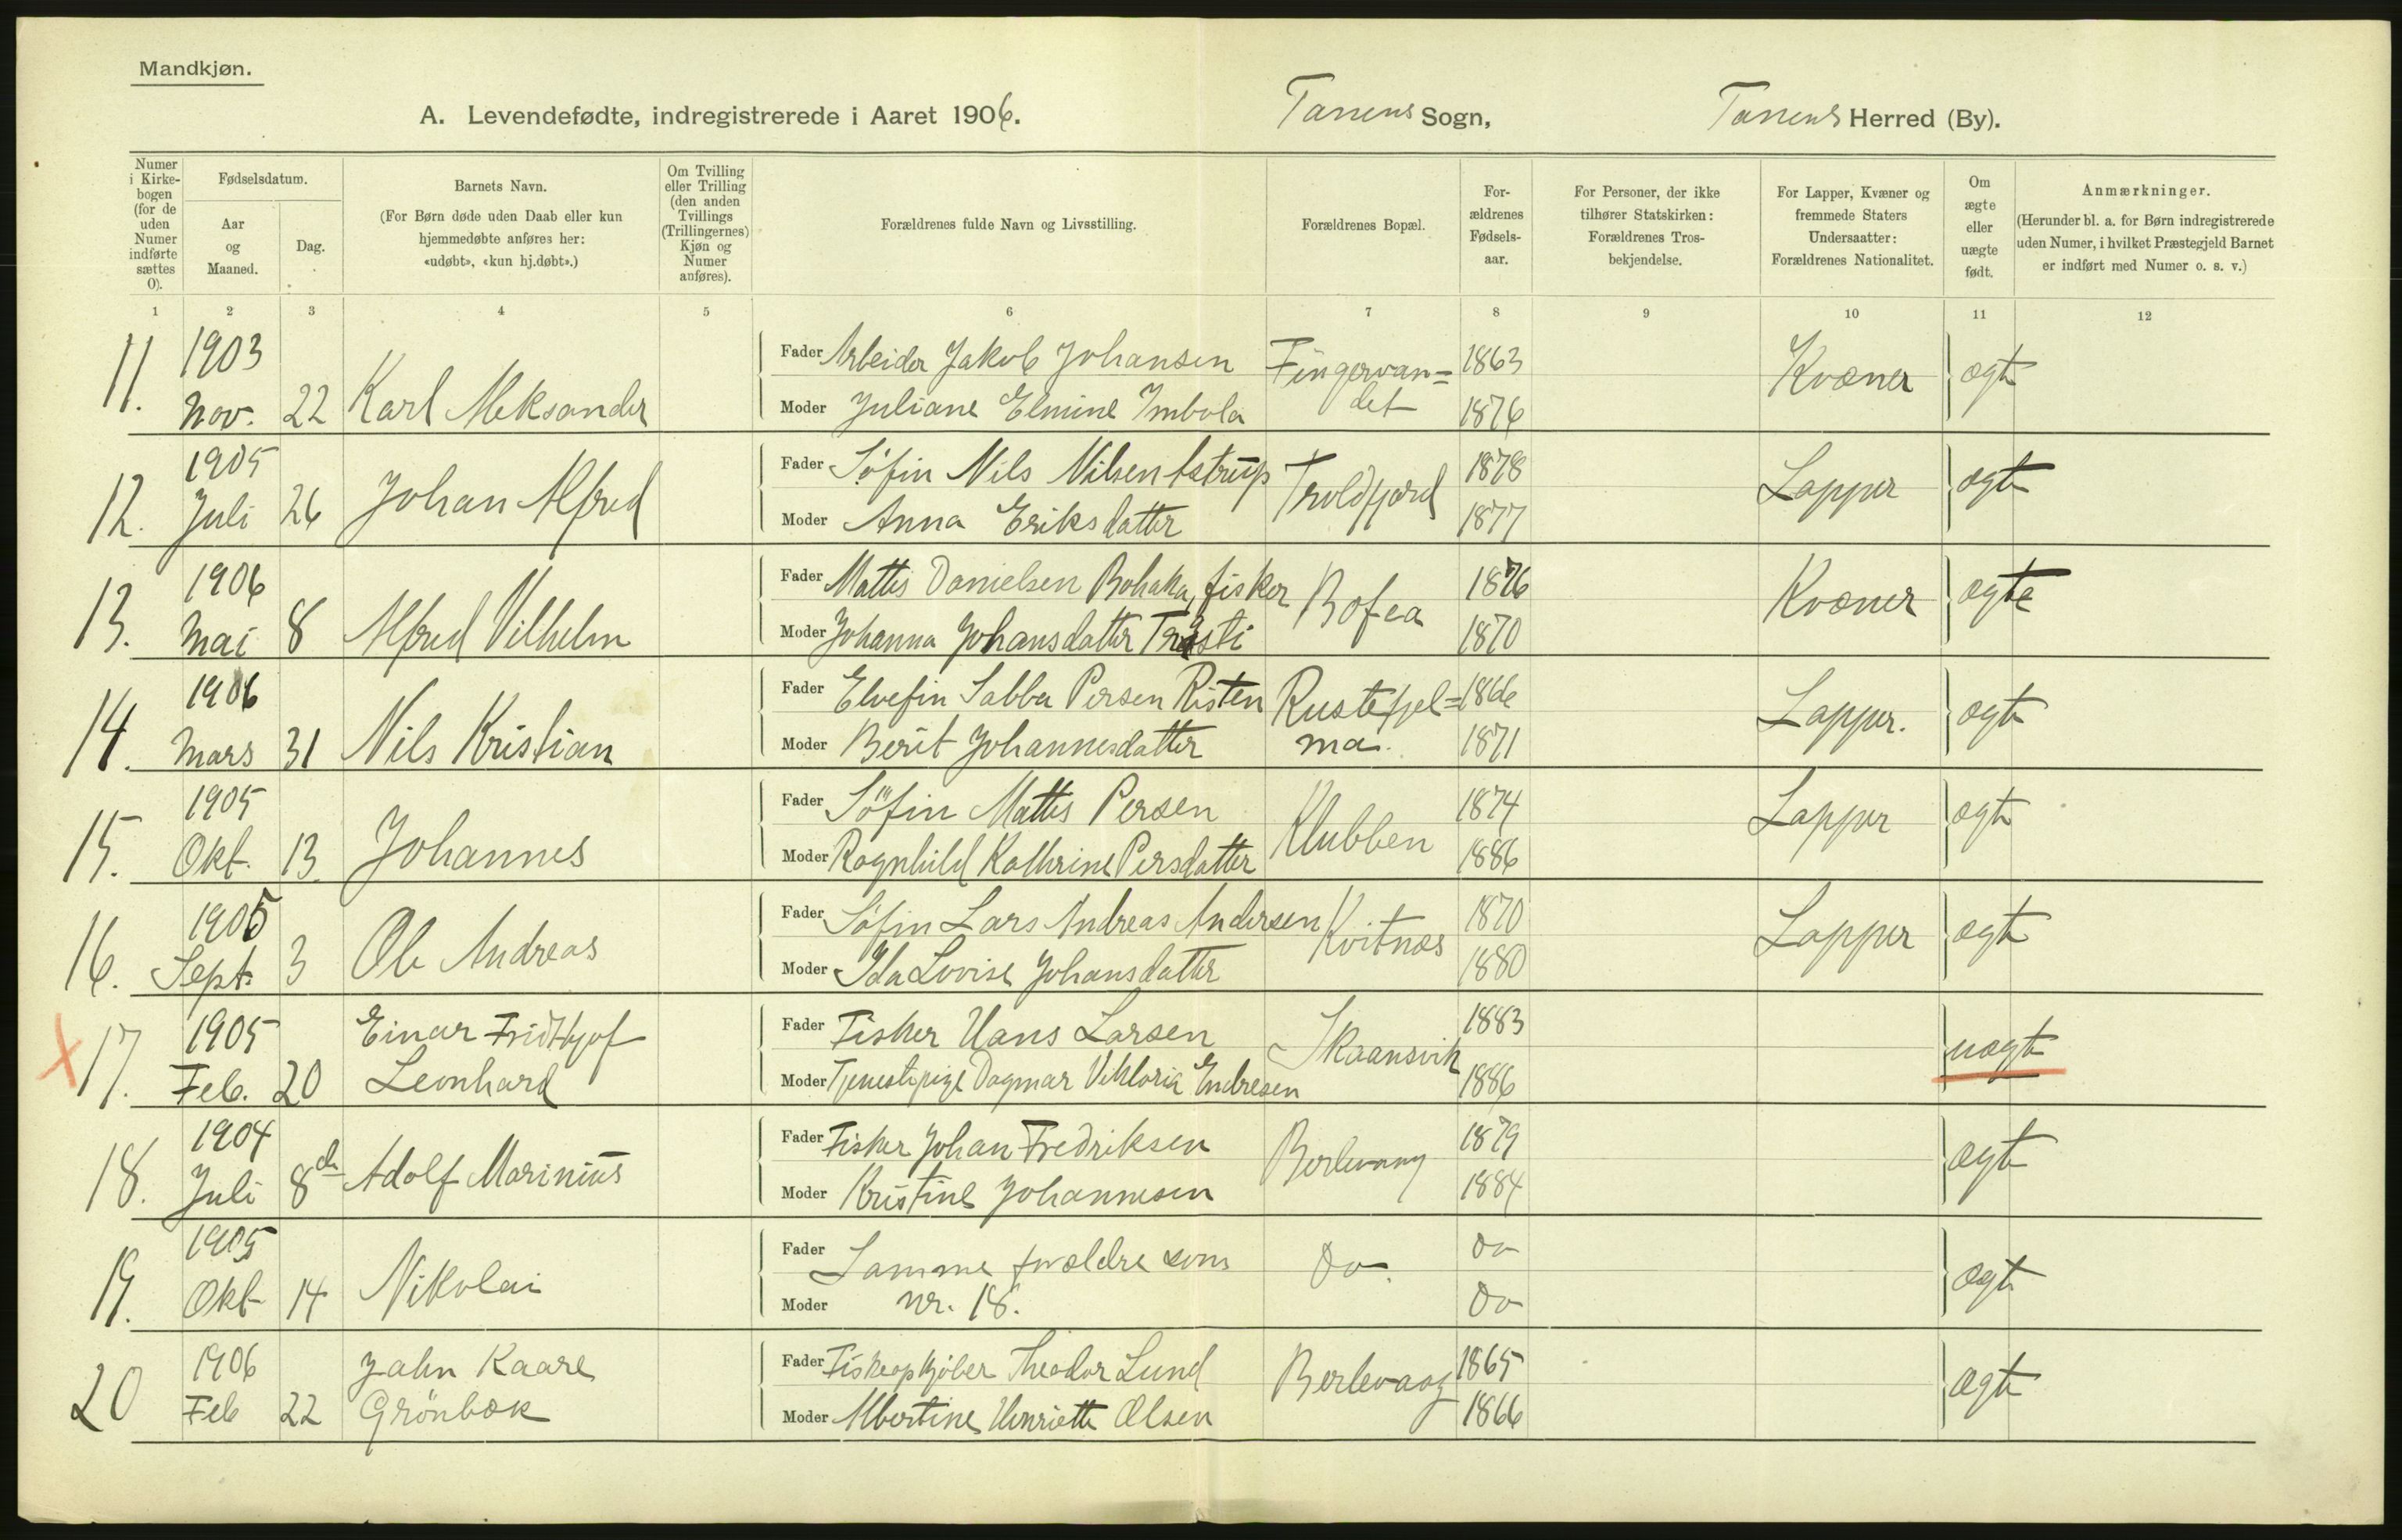 Mandkjøn.
A. Levendefødte, indregistrerede i Aaret 1906. Tanens Sogn, Tanens Herred (By).
Numer i Kirkebogen (for de uden Numer indførte sættes 0).
Fødselsdatum.
Aar og Maaned.
Dag.
Barnets Navn.
(For Børn døde uden Daab eller kun hjemmedøbte anføres her: «udøbt», «kun hj.døbt».)
Om Tvilling eller Trilling (den anden Tvillings (Trillingernes) Kjøn og Numer anføres).
Forældrenes fulde Navn og Livsstilling.
Forældrenes Bopæl.
Forældrenes Fødselsaar.
For Personer, der ikke tilhører Statskirken: Forældrenes Trosbekjendelse.
For Lapper, Kvæner og fremmede Staters Undersaatter: Forældrenes Nationalitet.
Om ægte eller uægte født.
Anmærkninger.
(Herunder bl. a. for Børn indregistrerede uden Numer, i hvilket Præstegjeld Barnet er indført med Numer o. s. v.)
1 2 3 4 5 6 7 8 9 10 11 12
11. 1903 Nov. 22 Karl Aleksander Fader Arbeider Jakob Johansen Fingervan= 1863 Kvæner ægte
Moder Juliane Elmine Imbola det 1876
12. 1905 Juli 26 Johan Alfred Fader Söfin Nils Nilsen Troldfjord 1878 Lapper ægte
Moder Anna Eriksdatter 1877
13. 1906 Mai 8 Alfred Vilhelm Fader Mattis Danielsen Bohaka, fisker Bofea 1876 Kvæner ægte
Moder Johanna Johansdatter 1870
14. 1906 Mars 31 Nils Kristian Fader Elvefin Sabba Persen Risten Rustefjel= 1866 Lapper. ægte
Moder Berit Johannesdatter ma. 1871
15. 1905 Okt. 13. Johannes Fader Söfin Mattis Persen Klubben 1874 Lapper ægte
Moder Ragnhild Kathrine Persdatter 1886
16. 1905 Sept. 3 Ole Andreas Fader Söfin Lars Andreas Andersen Kvitnæs 1870 Lapper ægte
Moder Ida Lovise Johansdatter 1880
17. 1905 Feb. 20 Einar Fridthjof Leonhard Fader Fisker Hans Larsen Skaansvik 1883 uægte
Moder Tjenestepige Dagmar Viktoria Endresen 1886
18. 1904 Juli 8de Adolf Marinius Fader Fisker Johan Fredriksen Berlevaag 1879 ægte
Moder Kristine Johannesen 1884
19. 1905 Okt 14 Nikolai Fader Samme forældre som Do. Do ægte
Moder nr. 18. Do
20 1906 Feb 22 Jahn Kaare Grönbæk Fader Fiskeopkjøber Theodor Lund Berlevaag 1865 ægte
Moder Albertine Henriette Olsen 1866